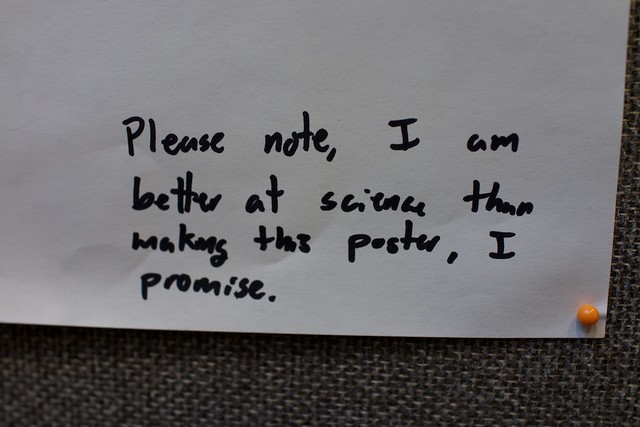 Please note, I am
better at science than
making this poster, I
promise.